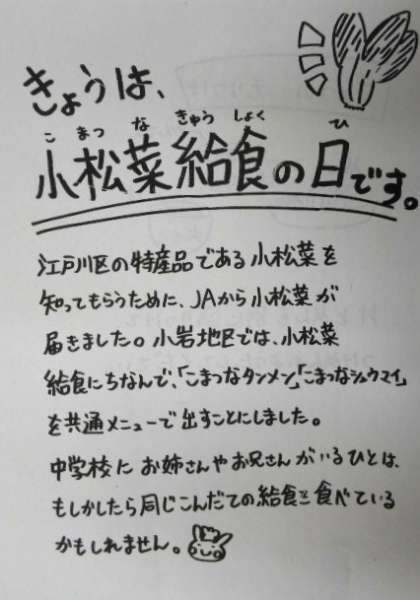 きょうは、
こまつなきゅうしょく ひ
小松菜給食の日です。
江戸川区の特産品である小松菜を
知ってもらうために、JAから小松菜が
届きました。小岩地区では、小松菜
給食にちなんで、「こまつなタンメン」「こまつなシュウマイ」
を共通メニューで出すことにしました。
中学校にお姉さんやお兄さんがいるひとは、
もしかしたら同じこんだての給食を食べている
かもしれません。